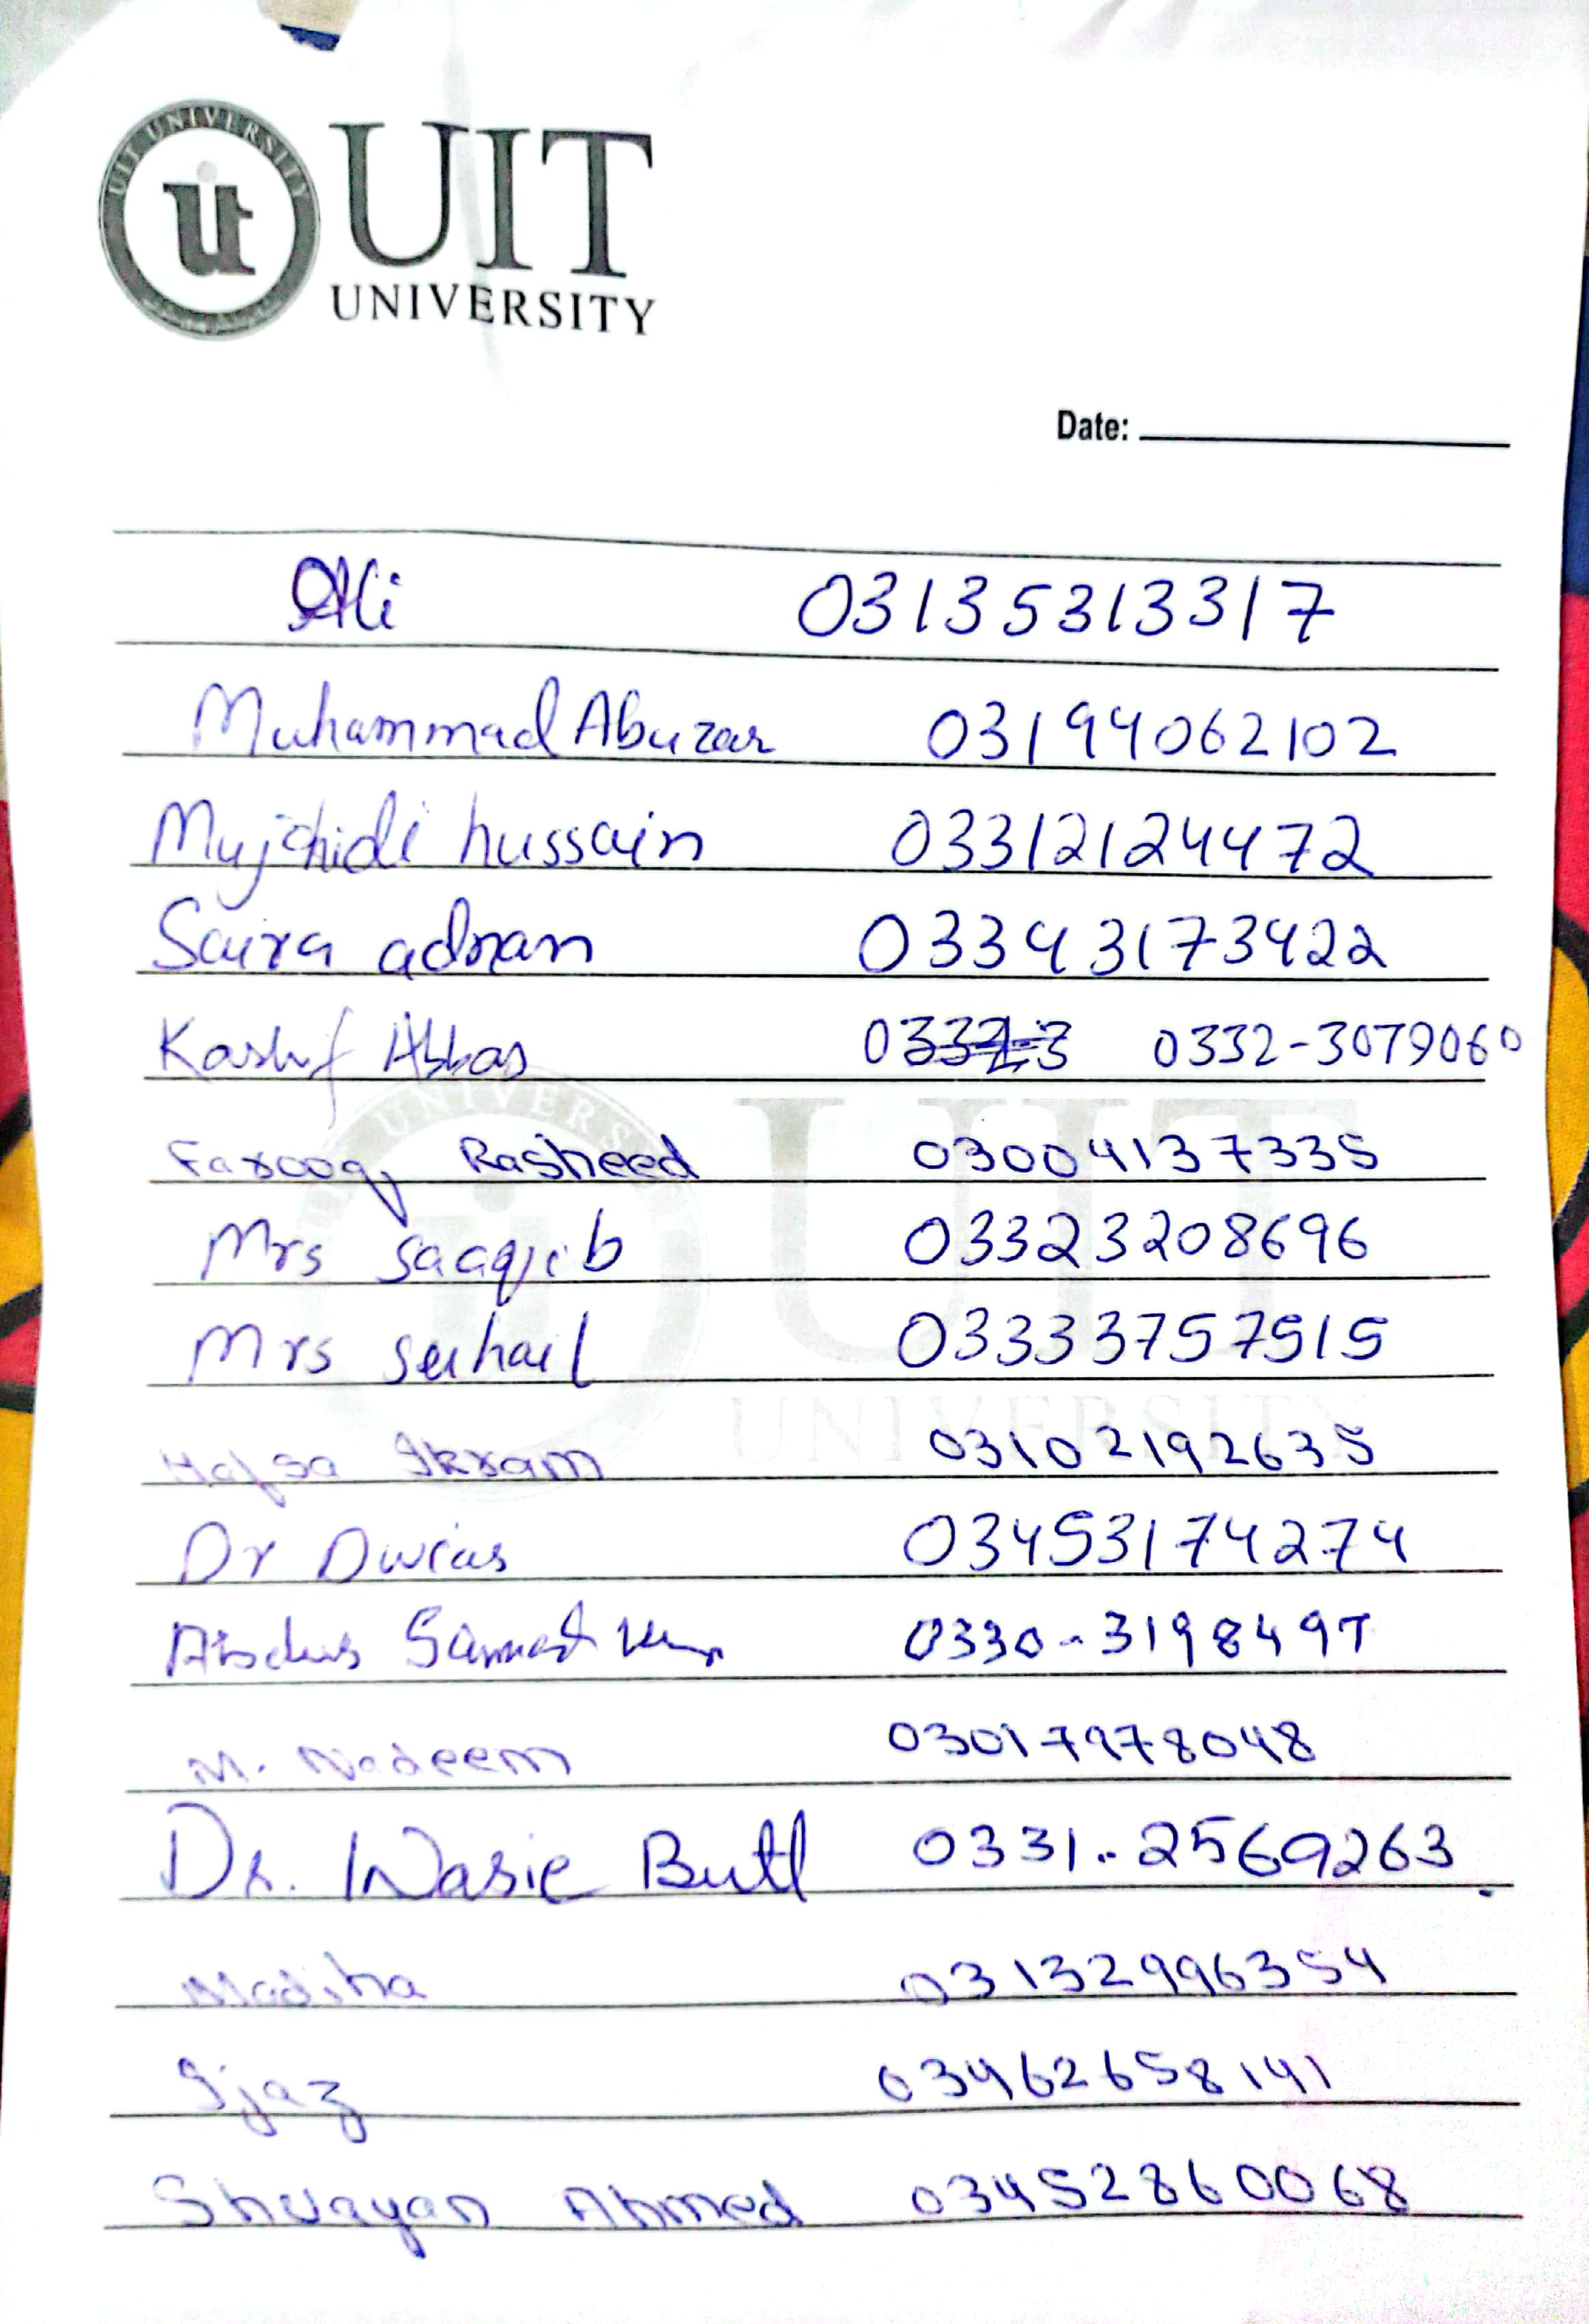 UIT UNIVERSITY
uit
UIT
UNIVERSITY
Date:
Ali 03135313317
Muhammad Abuzar 03194062102
hussain 03312124472
Saira adnan 03343173422
Kashif Abbas 0332-3079060
Farooq Rasheed 03004137335
Mrs saaqib 03323208696
Mrs suhail 03333757515
Hafsa Ikram 03102192635
Dr Owias 03453174274
Abdus Samad 0330-3198497
M. Nadeem 03017978048
Dr. Wasie Butt 0331-2569263
Madiha 03132996354
Ijaz 03462658141
Shuayan Ahmed 03452860068